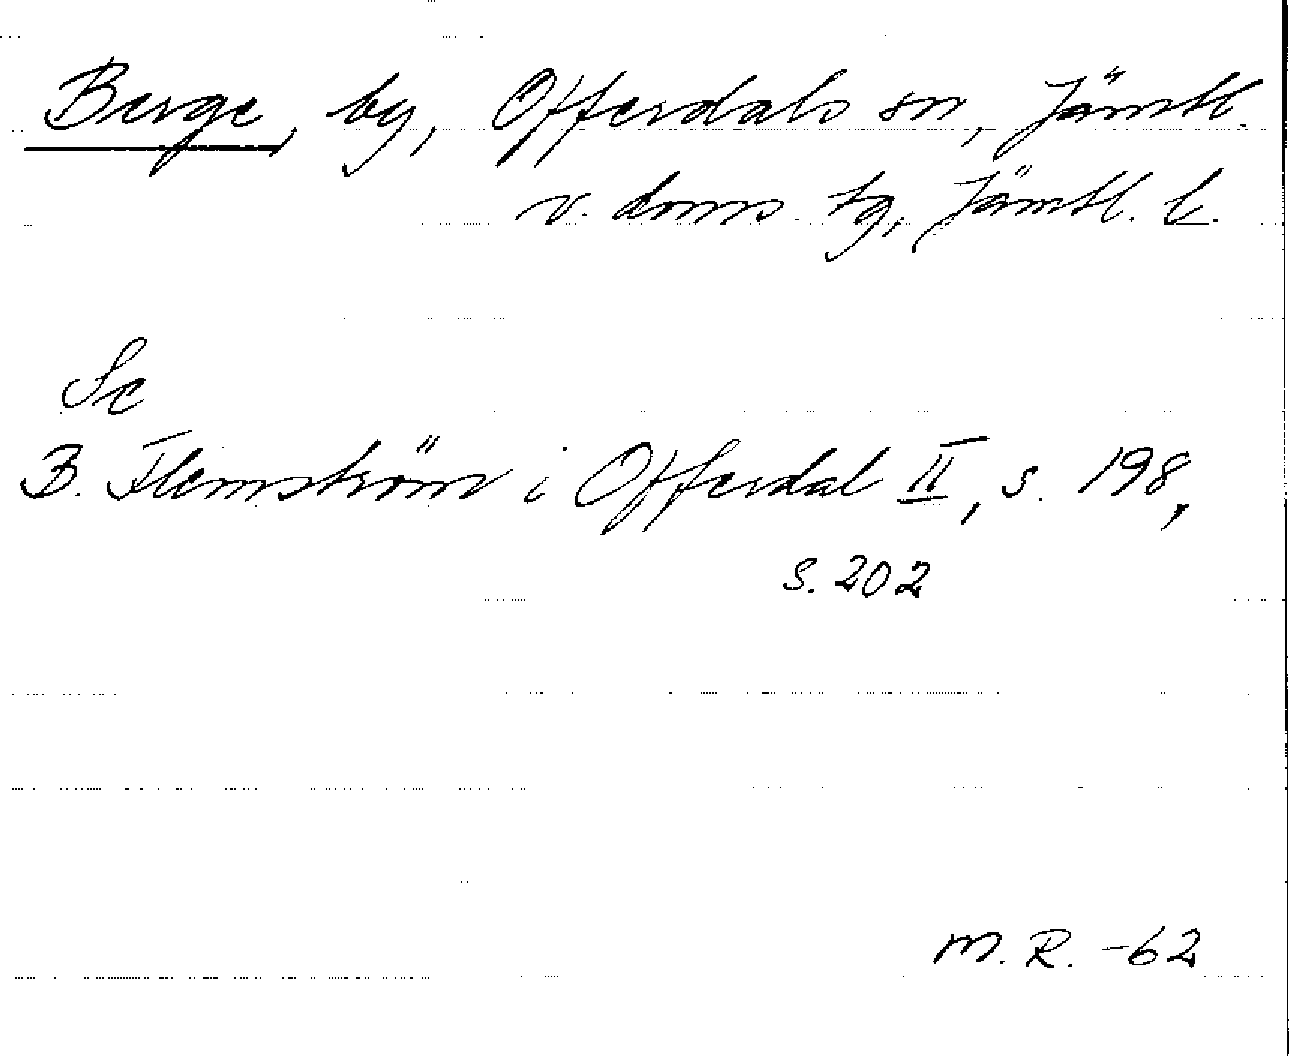 Berge, by, Offerdals sn, Jämtl.
v. doms. tg, Jämtl. l.
Se
B. Flemström i Offerdal II, s. 198,
s. 202
M. R. -62